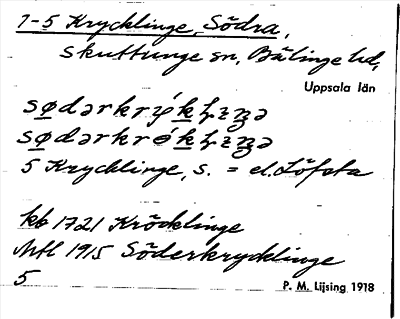 1-5 Krycklinge, Södra,
Skuttunge sn, Bälinge hd,
Uppsala län
5 Krycklinge, s. = el. Löfsta
kb 1721 Kröcklinge
Mtl 1915 Söderkrycklinge
5
P. M. Lijsing 1918